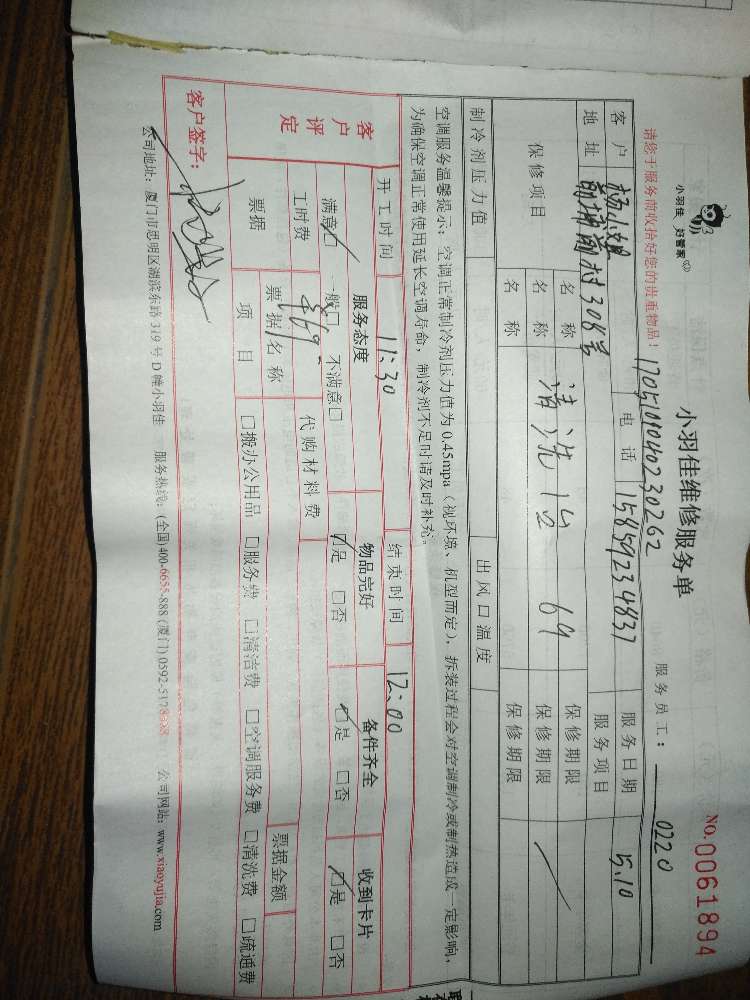 小羽佳 好管家
小羽佳维修服务单
No.0061894
请您于服务前收拾好您的贵重物品！
1705109040230262
服务员工：0220
客户 杨小姐 电话 15859234837 服务日期 5.10
地址 村308号 服务项目
保修项目 名称 保修期限
名称 清洗 69 保修期限
名称 保修期限
制冷剂压力值 出风口温度
空调服务温馨提示：空调正常制冷剂压力值为0.45mpa（视环境、机型而定），拆装过程会对空调制冷或制热造成一定影响，
为确保空调正常使用延长空调寿命，制冷剂不足时请及时补充。
客户评定 开工时间 11:30 结束时间 12:00
服务态度 物品完好 备件齐全 收到卡片
满意□ 一般□ 不满意□ □是 □否 □是 □否 □是 □否
工时费 ¥69 代购材料费
票据 票据名称 票据金额
项目 □搬办公用品 □服务费 □清洁费 □空调服务费 □清洗费 □疏通费
客户签字：
公司地址：厦门市思明区湖滨东路319号D幢小羽佳 服务热线：(全国)400-6655-888 (厦门)0592-5178 公司网站：www.xiaoyujia.com